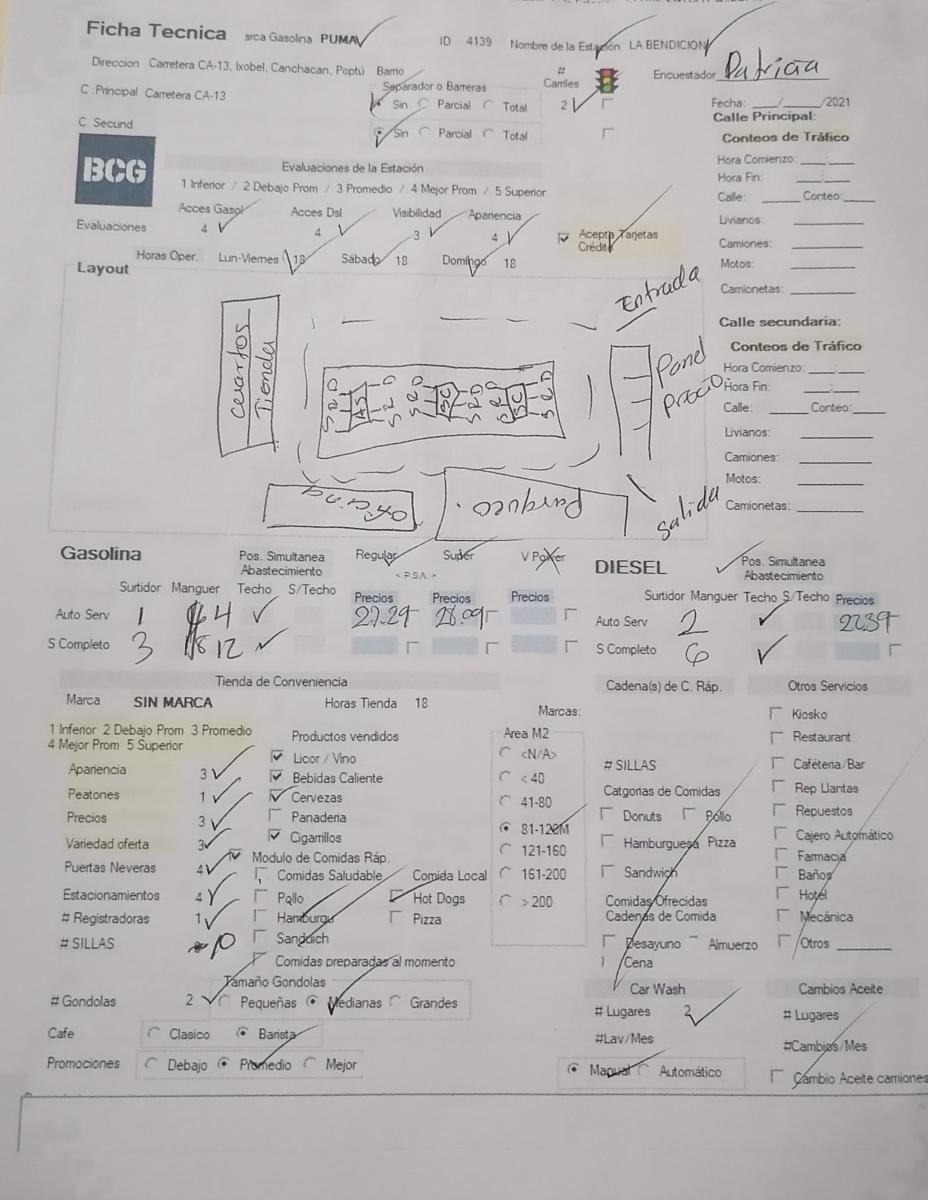 Ficha Tecnica arca Gasolina PUMA ID 4139 Nombre de la Estación LA BENDICION
Direccion Carretera CA-13, Ixobel, Canchacan, Poptú Barrio # Carriles Encuestador Patricia
C .Principal Carretera CA-13 Separador o Barreras
Sin Parcial Total 2 Fecha: ___/___/2021
C. Secund Sin Parcial Total Calle Principal:
BCG
Conteos de Tráfico
Evaluaciones de la Estación Hora Comienzo: ___:___
1 Inferior / 2 Debajo Prom / 3 Promedio / 4 Mejor Prom / 5 Superior Hora Fin: ___:___
Acces Gasol Acces Dsl Visibilidad Apariencia Calle: _____ Conteo:_____
Evaluaciones 4 4 3 4 Acepta Tarjetas Crédito Livianos:
Camiones:
Horas Oper. Lun-Viernes 18 Sábado 18 Domingo 18 Motos:
Layout Camionetas:
Entrada
Calle secundaria:
Conteos de Tráfico
cuartos
Tienda
Panel
precio
Hora Comienzo: ___:___
Hora Fin: ___:___
Calle: _____ Conteo:_____
Livianos:
Camiones:
Motos:
Camionetas:
oficina
Parqueo.
Salida
Gasolina Pos. Simultanea Abastecimiento Regular Super V Power DIESEL Pos. Simultanea Abastecimiento
< P.S.A. >
Surtidor Manguer Techo S/Techo Precios Precios Precios Surtidor Manguer Techo S/Techo Precios
Auto Serv 1 4 27.29 28.09 Auto Serv 2 22.39
S Completo 3 12 S Completo 6
Tienda de Conveniencia Cadena(s) de C. Ráp. Otros Servicios
Marca SIN MARCA Horas Tienda 18
Marcas:
1 Inferior 2 Debajo Prom 3 Promedio
4 Mejor Prom 5 Superior
Apariencia 3
Peatones 1
Precios 3
Variedad oferta 3
Puertas Neveras 4
Estacionamientos 4
# Registradoras 1
# SILLAS 0
Productos vendidos
Licor / Vino
Bebidas Caliente
Cervezas
Panaderia
Cigarrillos
Modulo de Comidas Ráp.
Comidas Saludable Comida Local
Pollo Hot Dogs
Hamburgu Pizza
Sandwich
Comidas preparadas al momento
Area M2
<N/A>
< 40
41-80
81-120M
121-160
161-200
> 200
# SILLAS
Catgorias de Comidas
Donuts Pollo
Hamburguesa Pizza
Sandwich
Comidas Ofrecidas
Cadenas de Comida
Desayuno Almuerzo
Cena
Kiosko
Restaurant
Cafétería/Bar
Rep Llantas
Repuestos
Cajero Automático
Farmacia
Baños
Hotel
Mecánica
Otros ________
Tamaño Gondolas
# Gondolas 2 Pequeñas Medianas Grandes
Cafe Clasico Barista
Promociones Debajo Promedio Mejor
Car Wash
# Lugares 2
#Lav/Mes
Manual Automático
Cambios Aceite
# Lugares
#Cambios/Mes
Cambio Aceite camiones